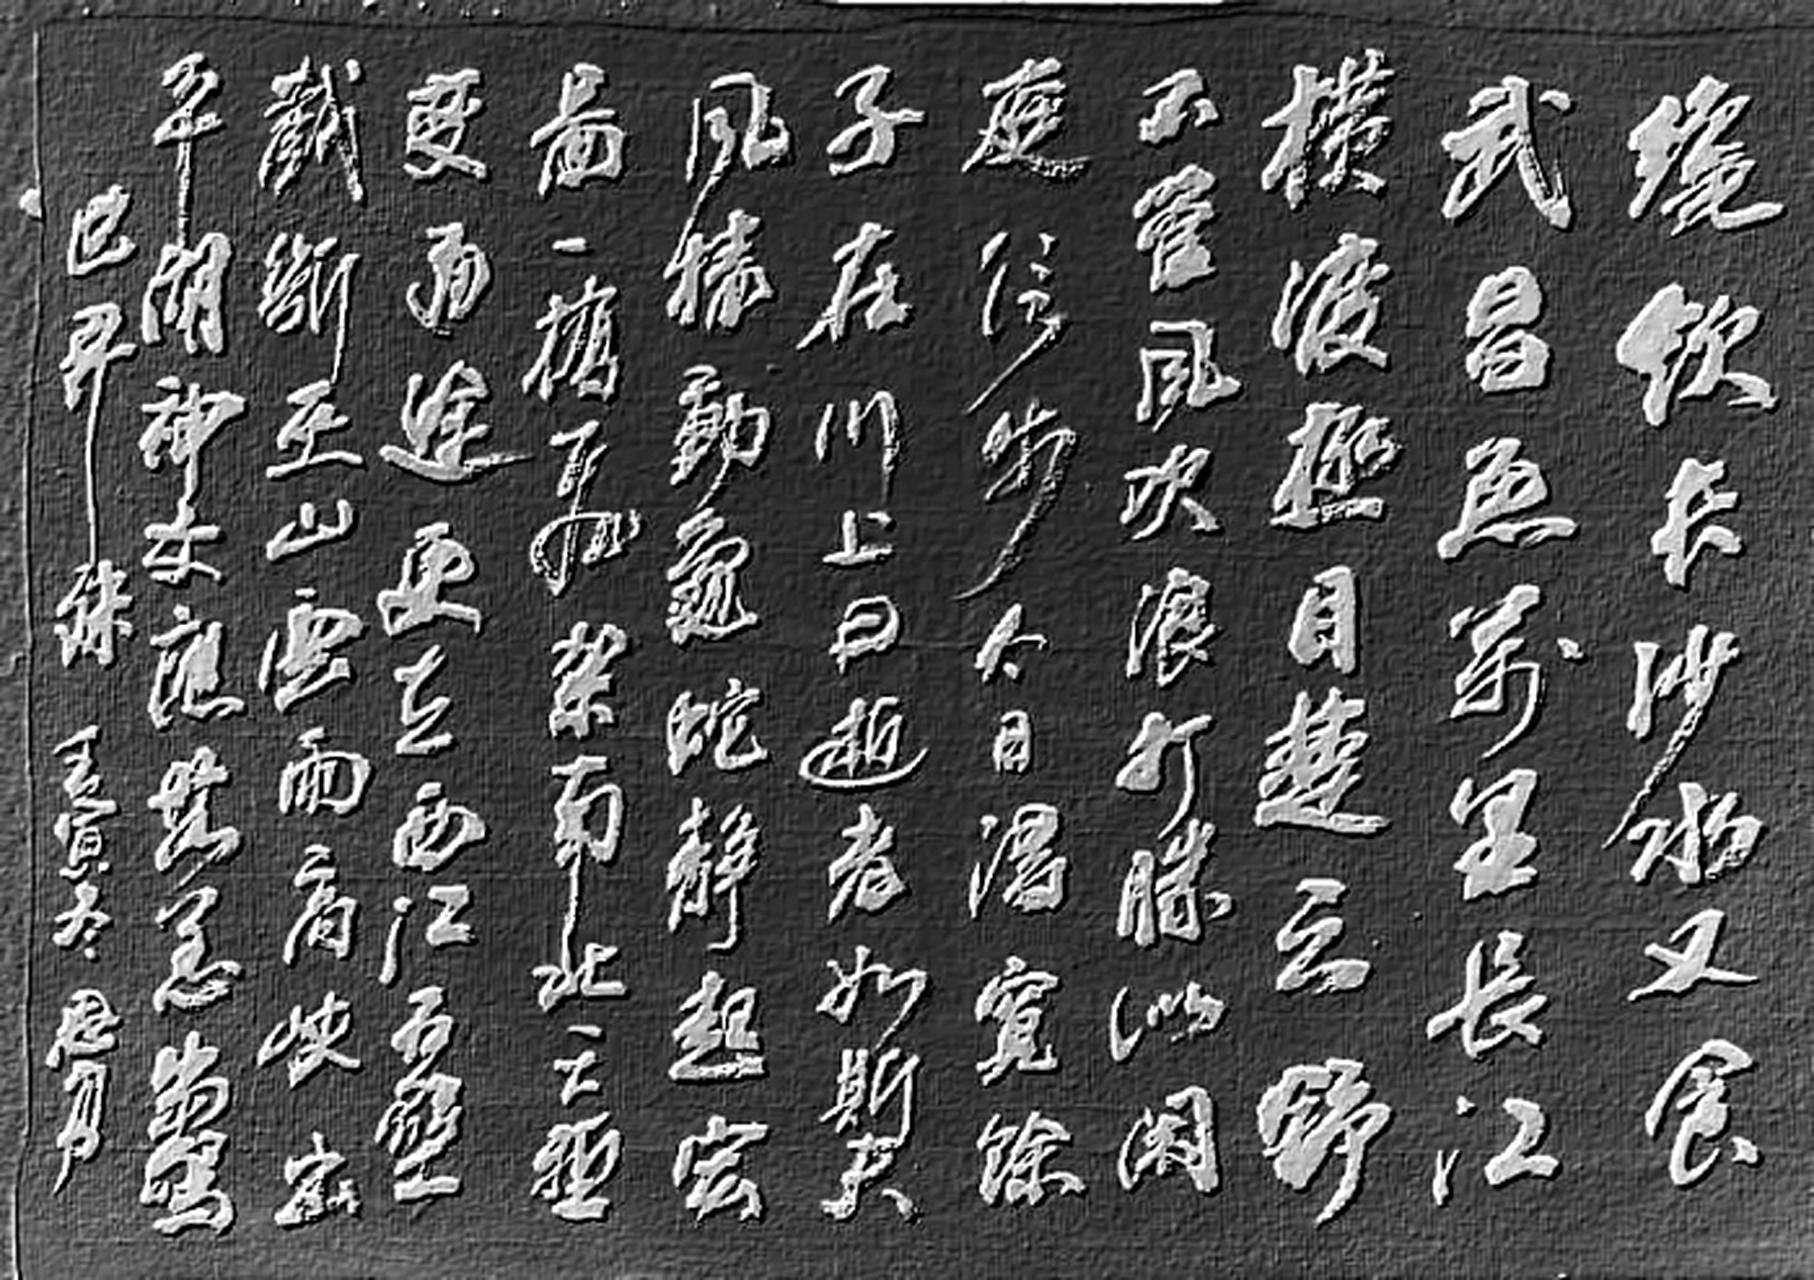 纔飲长沙水又食
武昌魚萬里長江
橫渡極目楚云舒
不管風吹浪打勝似闲
庭信步今日得寬餘
子在川上曰逝者如斯夫
風檣動龜蛇靜起宏
圖一橋飛架南北天塹
變通途更立西江石壁
截斷巫山雲雨高峽出
平湖神女應無恙當驚
世界殊 壬寅冬